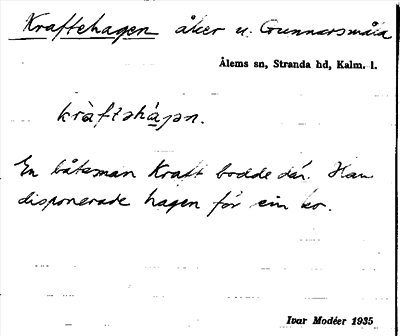 Kraftehagen åker u. Gunnarsmåla
Ålems sn, Stranda hd, Kalm. l.
kràftəhá̱gən.
En båtsman Kraft bodde där. Han
disponerade hagen för sin ko.
Ivar Modéer 1935